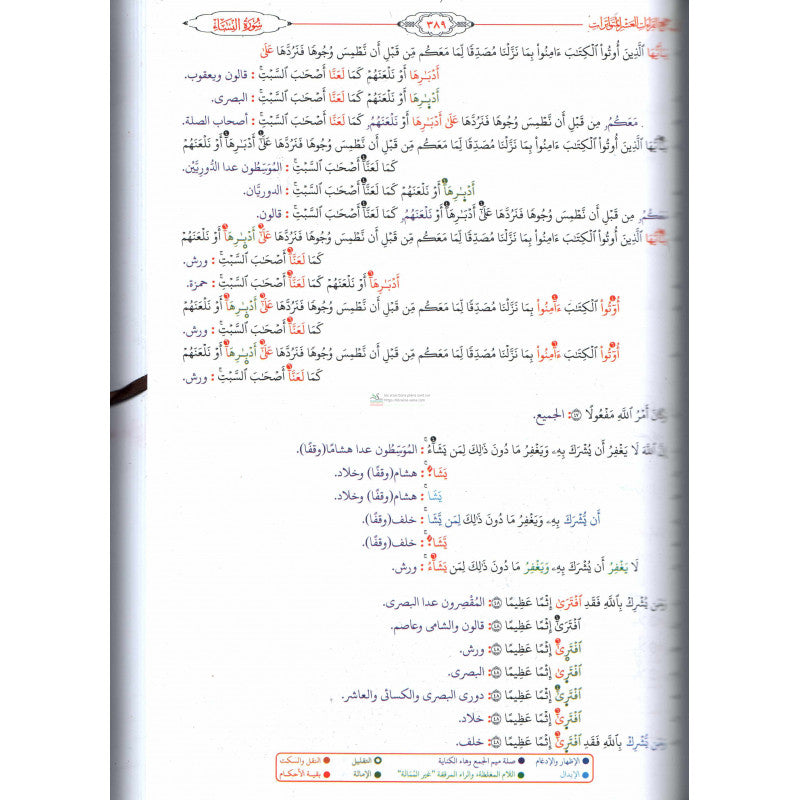 سُورَةُ النِّسَاءِ
٣٨٩
ٱلَّذِينَ أُوتُوا۟ ٱلْكِتَـٰبَ ءَامِنُوا۟ بِمَا نَزَّلْنَا مُصَدِّقًا لِمَا مَعَكُم مِّن قَبْلِ أَن نَّطْمِسَ وُجُوهًا فَنَرُدَّهَا عَلَىٰ
أَدْبَـٰرِهَا أَوْ نَلْعَنَهُمْ كَمَا لَعَنَّا أَصْحَـٰبَ ٱلسَّبْتِ ۚ : قالون ويعقوب.
أَدْبَـٰرِهَا أَوْ نَلْعَنَهُمْ كَمَا لَعَنَّا أَصْحَـٰبَ ٱلسَّبْتِ ۚ : البصرى.
مَعَكُمُۥ مِن قَبْلِ أَن نَّطْمِسَ وُجُوهًا فَنَرُدَّهَا عَلَىٰ أَدْبَـٰرِهَا أَوْ نَلْعَنَهُمُۥ كَمَا لَعَنَّا أَصْحَـٰبَ ٱلسَّبْتِ ۚ : أصحاب الصلة.
ٱلَّذِينَ أُوتُوا۟ ٱلْكِتَـٰبَ ءَامِنُوا۟ بِمَا نَزَّلْنَا مُصَدِّقًا لِمَا مَعَكُم مِّن قَبْلِ أَن نَّطْمِسَ وُجُوهًا فَنَرُدَّهَا عَلَىٰٓ أَدْبَـٰرِهَآ أَوْ نَلْعَنَهُمْ
كَمَا لَعَنَّآ أَصْحَـٰبَ ٱلسَّبْتِ ۚ : المُوَسِّطُون عدا الدُّورِيَّيْن.
أَدْبَـٰرِهَآ أَوْ نَلْعَنَهُمْ كَمَا لَعَنَّآ أَصْحَـٰبَ ٱلسَّبْتِ ۚ : الدوريَّان.
مِن قَبْلِ أَن نَّطْمِسَ وُجُوهًا فَنَرُدَّهَا عَلَىٰٓ أَدْبَـٰرِهَآ أَوْ نَلْعَنَهُمُۥ كَمَا لَعَنَّآ أَصْحَـٰبَ ٱلسَّبْتِ ۚ : قالون.
ٱلَّذِينَ أُوتُوا۟ ٱلْكِتَـٰبَ ءَامِنُوا۟ بِمَا نَزَّلْنَا مُصَدِّقًا لِمَا مَعَكُم مِّن قَبْلِ أَن نَّطْمِسَ وُجُوهًا فَنَرُدَّهَا عَلَىٰٓ أَدْبَـٰرِهَآ أَوْ نَلْعَنَهُمْ
كَمَا لَعَنَّآ أَصْحَـٰبَ ٱلسَّبْتِ ۚ : ورش.
أَدْبَـٰرِهَآ أَوْ نَلْعَنَهُمْ كَمَا لَعَنَّآ أَصْحَـٰبَ ٱلسَّبْتِ ۚ : حمزة.
أُوتُوا۟ ٱلْكِتَـٰبَ ءَامِنُوا۟ بِمَا نَزَّلْنَا مُصَدِّقًا لِمَا مَعَكُم مِّن قَبْلِ أَن نَّطْمِسَ وُجُوهًا فَنَرُدَّهَا عَلَىٰٓ أَدْبَـٰرِهَآ أَوْ نَلْعَنَهُمْ
كَمَا لَعَنَّآ أَصْحَـٰبَ ٱلسَّبْتِ ۚ : ورش.
أُوتُوا۟ ٱلْكِتَـٰبَ ءَامِنُوا۟ بِمَا نَزَّلْنَا مُصَدِّقًا لِمَا مَعَكُم مِّن قَبْلِ أَن نَّطْمِسَ وُجُوهًا فَنَرُدَّهَا عَلَىٰٓ أَدْبَـٰرِهَآ أَوْ نَلْعَنَهُمْ
كَمَا لَعَنَّآ أَصْحَـٰبَ ٱلسَّبْتِ ۚ : ورش.
أَمْرُ ٱللَّهِ مَفْعُولًا ٤٧: الجميع.
لَا يَغْفِرُ أَن يُشْرَكَ بِهِۦ وَيَغْفِرُ مَا دُونَ ذَٰلِكَ لِمَن يَشَآءُ ۚ : المُوَسِّطُون عدا هشاما(وقفًا).
يَشَا : هشام(وقفًا) وخلاد.
يَشَا : هشام(وقفًا) وخلاد.
أَن يُشْرَكَ بِهِۦ وَيَغْفِرُ مَا دُونَ ذَٰلِكَ لِمَن يَّشَا : خلف(وقفًا).
يَّشَا : خلف(وقفًا).
لَا يَغْفِرُ أَن يُشْرَكَ بِهِۦ وَيَغْفِرُ مَا دُونَ ذَٰلِكَ لِمَن يَشَآءُ ۚ : ورش.
وَمَن يُشْرِكْ بِٱللَّهِ فَقَدِ ٱفْتَرَىٰ إِثْمًا عَظِيمًا ٤٨: المُقْصِرون عدا البصرى.
ٱفْتَرَىٰٓ إِثْمًا عَظِيمًا ٤٨: قالون والشامى وعاصم.
ٱفْتَرَىٰٓ إِثْمًا عَظِيمًا ٤٨: ورش.
ٱفْتَرَىٰ إِثْمًا عَظِيمًا ٤٨: البصرى.
ٱفْتَرَىٰٓ إِثْمًا عَظِيمًا ٤٨: دورى البصرى والكسائى والعاشر.
ٱفْتَرَىٰٓ إِثْمًا عَظِيمًا ٤٨: خلاد.
وَمَن يُّشْرِكْ بِٱللَّهِ فَقَدِ ٱفْتَرَىٰٓ إِثْمًا عَظِيمًا ٤٨: خلف.
الإظهار والإدغام صلة ميم الجمع وهاء الكناية التقليل النقل والسكت
الإبدال اللام المغلظة، والراء المرققة "غير المُمَالة" الإمالة بقية الأحكام